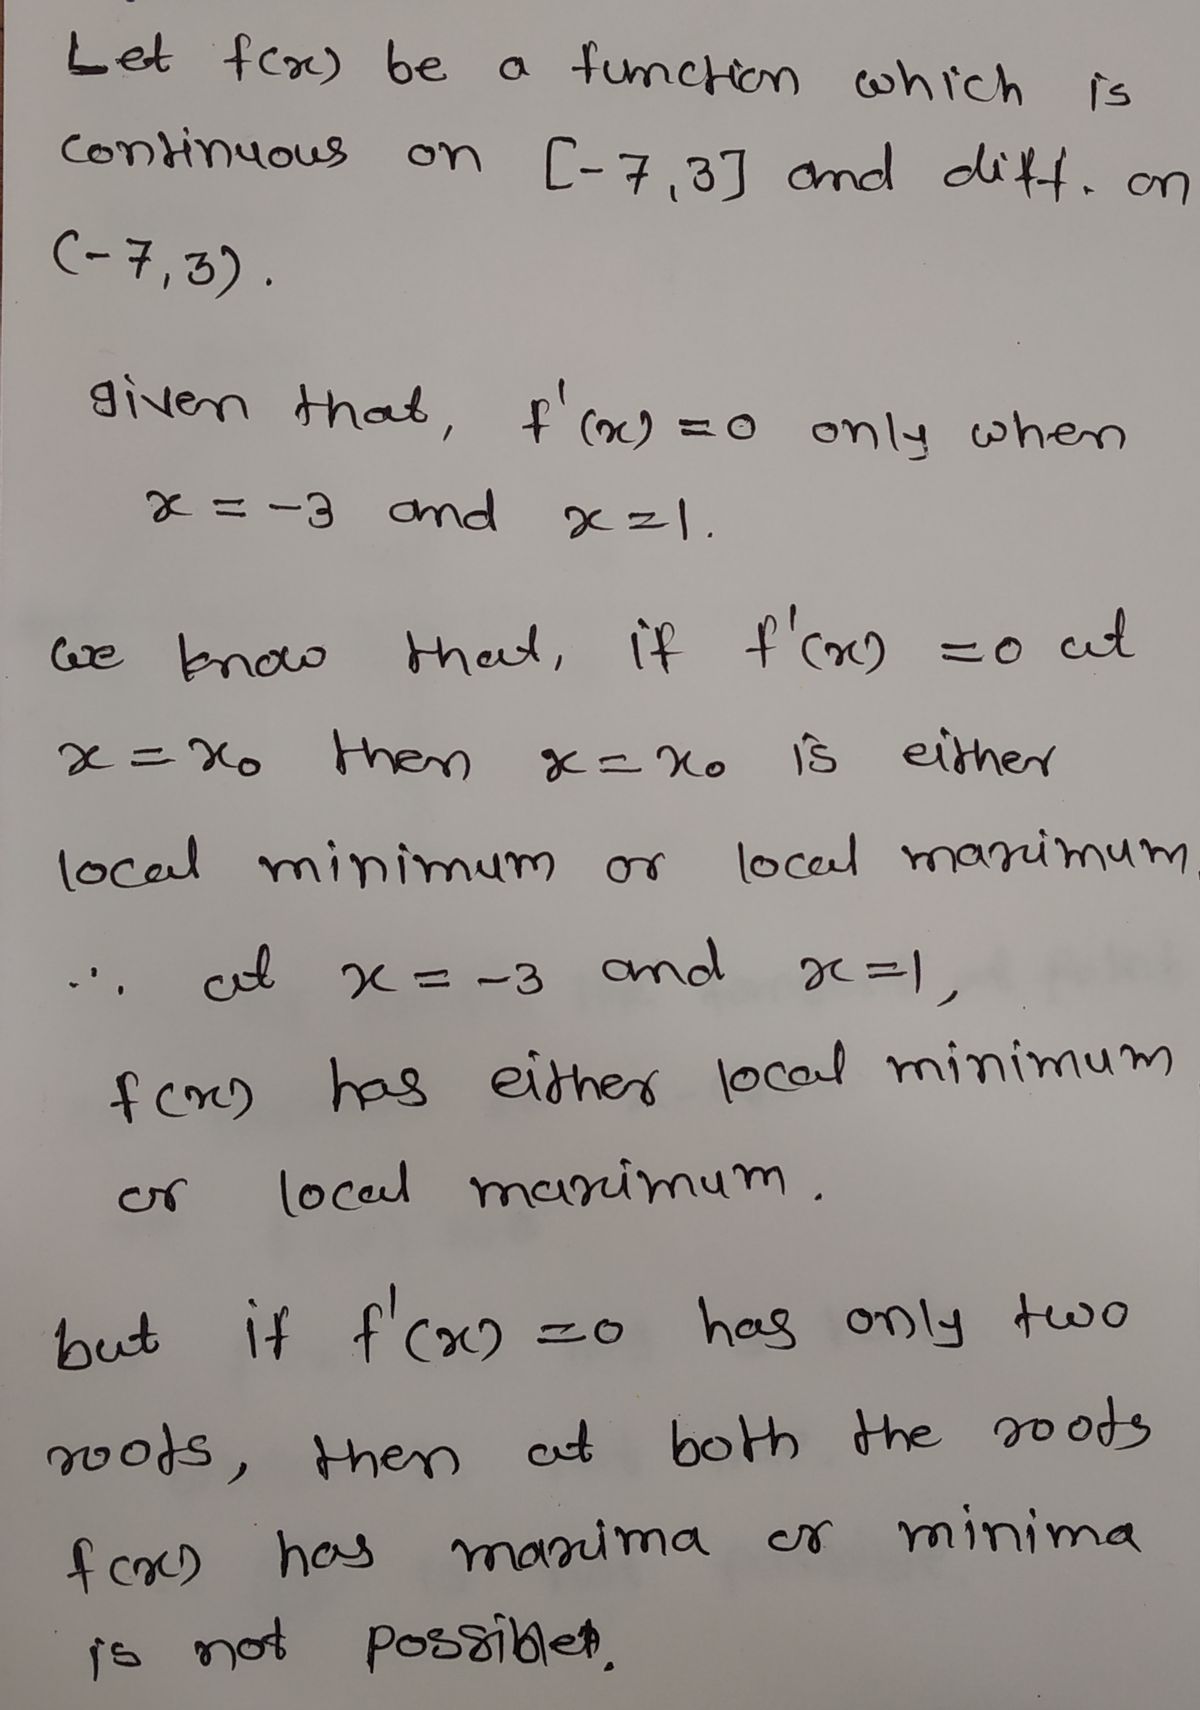 Let f(x) be a function which is
continuous on [-7,3] and diff. on
(-7,3).
given that, f'(x) =0 only when
x = -3 and x=1.
we know that, if f'(x) =0 at
x = x₀ then x = x₀ is either
local minimum or local maximum.
∴ at x = -3 and x=1,
f(x) has either local minimum
or local maximum.
but if f'(x) =0 has only two
roots, then at both the roots
f(x) has maxima or minima
is not possible.